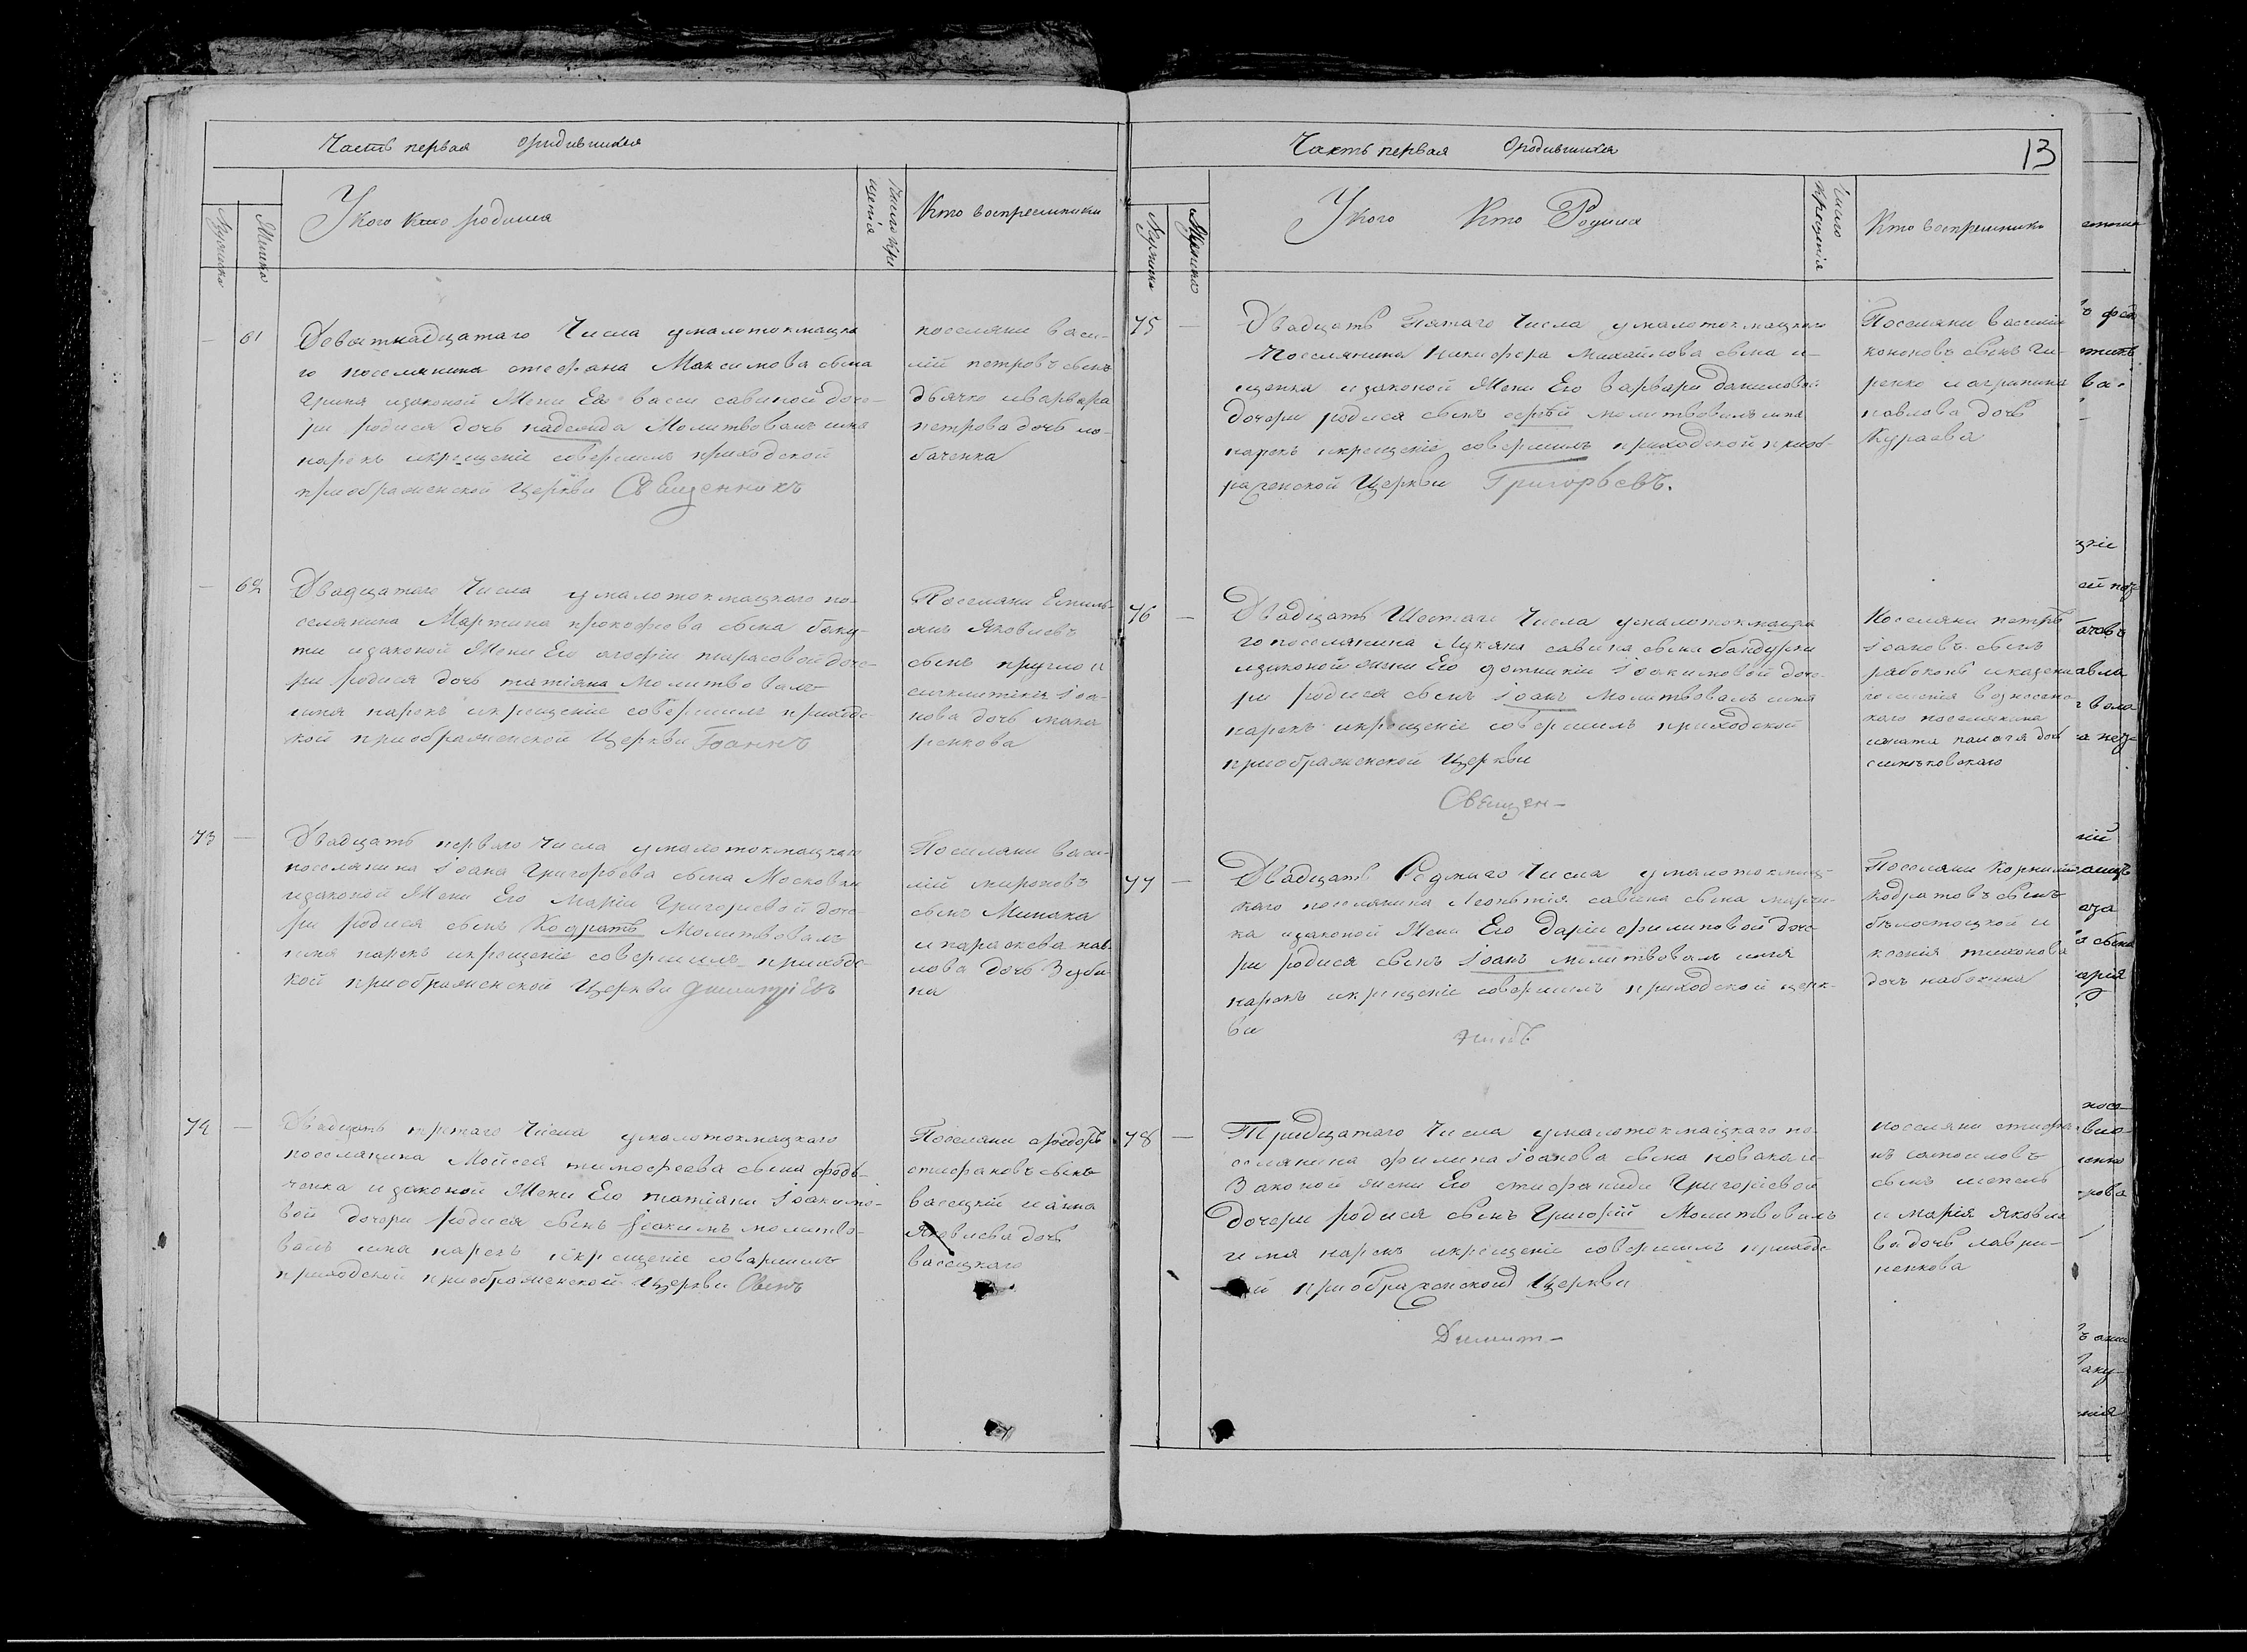 Часть первая оридившихся
Мужеска
Женска
У кого кто родился
Число кре
щенія
Кто воспреемники
— 61
Девятнадцатаго Числа умалотокмацка
го поселянина стефана Максимова сына
изаконой Жени Его васси савиной доче-
ри родися дочь надежда Молитвовалъ имя
нарекъ икрещеніе совершилъ приходской
приображенской Церкви Священникъ
поселяни васи-
лій петровъ сынъ
дьячко иварвара
петрова дочь ло-
баченка
— 62
Двадцатаго Числа умалотокмацкаго по-
селянина Мартина прокофіева сына баку-
ти изаконой Жени Его агафіи тарасовой доче-
ри родися дочь татіяна Молитвовалъ
имя нарекъ икрещеніе совершилъ приходс-
кой приображенской Церкви Іоаннъ
Поселяни Емиль-
янъ Яковлевъ
сынъ кругло и
синклитикія іоа-
нова дочь мака
ренкова
73 —
Двадцать перваго Числа умалотокмацкаго
поселянина іоана Григорьева сына Московки
изаконой Жени Его маріи Григоріевой доче-
ри родися сынъ Кодратъ Молитвовалъ
имя нарекъ икрещеніе совершилъ приходс-
кой приображенской Церкви Димитріевъ
Поселяни васи-
лій мироновъ
сынъ Минака
ипараскева пав-
лова дочь Зуби-
на
74 —
Двадцать третаго Числа умалотокмацкаго
поселянина Мойсея тимофеева сына
ченка изаконой Жени Его татіяни іоакимо-
вой дочери родися сынъ іоакимъ молитво-
валъ имя нарекъ икрещеніе совершилъ
приходской приображенской Церкви Свенъ
Поселяни федоръ
стифановъ сынъ
васецкій ианна
Яковлева дочь
васецкаго
Часть первая Ородившихся
13
Мужеска
Женска
У кого Кто Родился
Число
Крещенія
Кто воспреемники
75 —
Двадцать Пятаго Числа умалотокмацкаго
Поселянина Никифора Михайлова сына и-
щенка изаконой Жени Его варвари даниловой
дочери родися сынъ сергій молитвовалъ имя
нарекъ икрещеніе совершилъ приходской приоб-
раженской Церкви Григорьевъ.
Поселяни василій
кононовъ сынъ Ги-
ренко иагрипина
павлова дочь
Кураева
76 —
Двадцать Шостаго Числа умалотокмацка
го поселянина Лукяна савина сына бандурки
изаконой жени Его домникіи іоакимовой доче-
ри родися сынъ іоанъ молитвовалъ имя
нарекъ икрещеніе совершилъ приходской
приображенской Церкви
Священ—
Поселяни петръ
іоановъ сынъ
рябоконь иказени
поселенія вознесенс-
каго поселянина
игната палагя дочь
синьковскаго
77 —
Двадцать Седмаго Числа умалотокмац-
каго поселянина Леонтія савина сына марчи-
ка изаконой Жени Его даріи филиповой доче-
ри родися сынъ іоанъ молитвовалъ имя
нарекъ икрещеніе совершилъ приходской церк-
ви
Поселяни Корнилій
Кодратовъ сынъ
бѣлостоцкой и
ксенія тихонова
дочь набокина
78 —
Тридцатаго Числа умалотокмацкаго по-
селянина филипа іоанова сына новака и-
Законой жени Его стифаниди Григоріевой
Дочери родися сынъ Григорій Молитвовалъ
имя нарекъ икрещеніе совершилъ приходс
й приображенской Церкви
Димит—
поселяни стифа
нъ самоиловъ
сынъ шепель
и марія яковле
ва дочь лаври-
ненкова